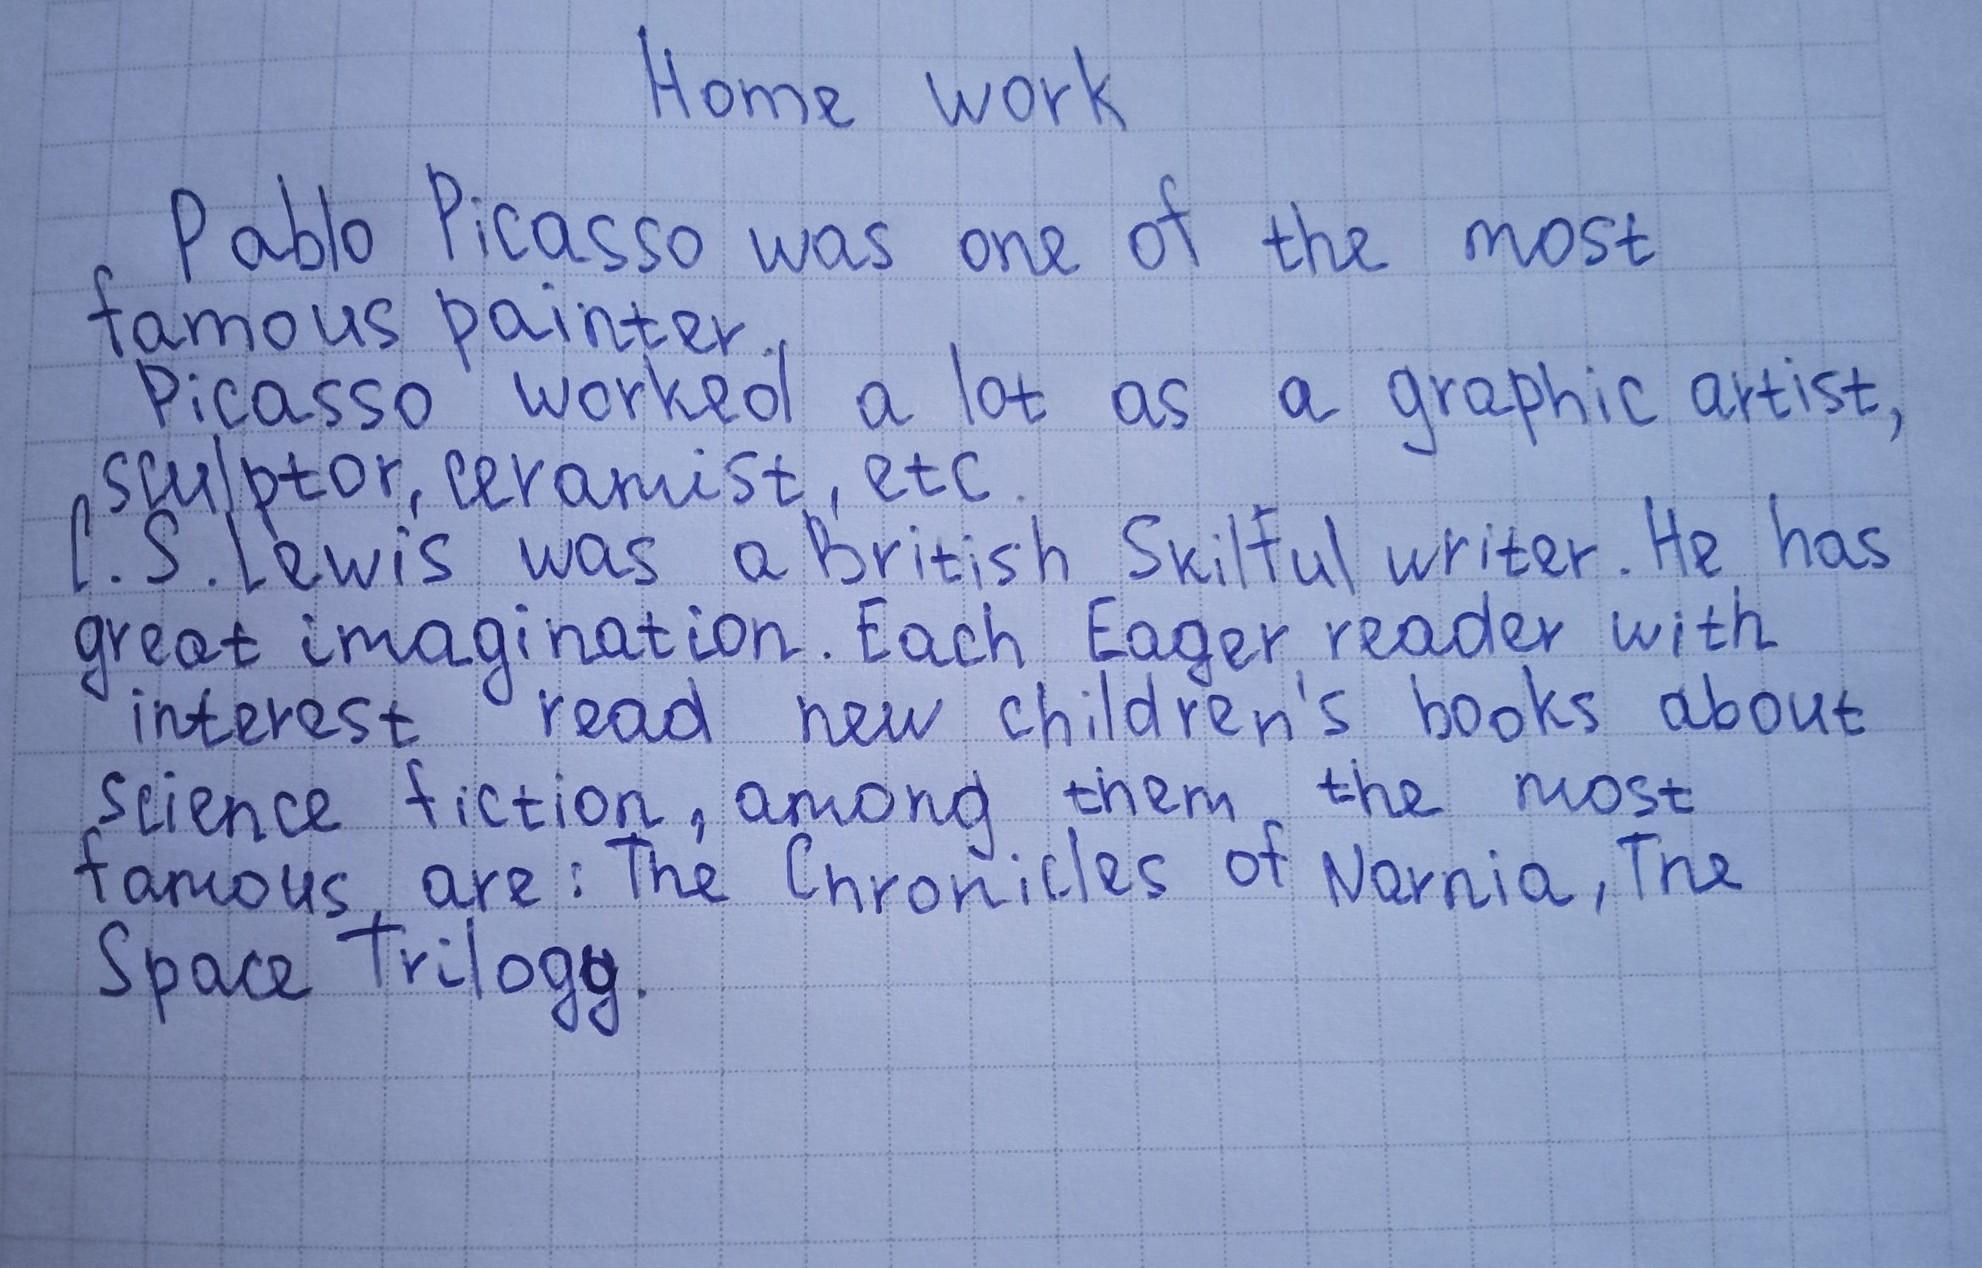 Home work
Pablo Picasso was one of the most
famous painter.
Picasso worked a lot as a graphic artist,
sculptor, ceramist, etc.
C.S.Lewis was a British Skilful writer. He has
great imagination. Each Eager reader with
interest read new children's books about
science fiction, among them the most
famous are: The Chronicles of Narnia, The
Space Trilogy.